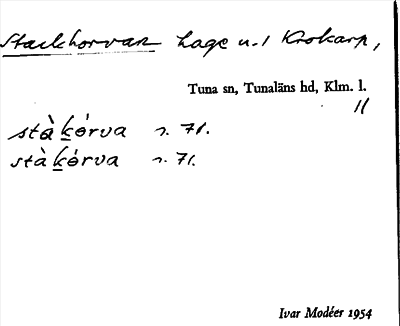 Stackhorvan hage u. 1 Krokarp,
Tuna sn, Tunaläns hd, Klm. l.
11
stàḵórva r. 71.
stàḵórva r. 71.
Ivar Modéer 1954